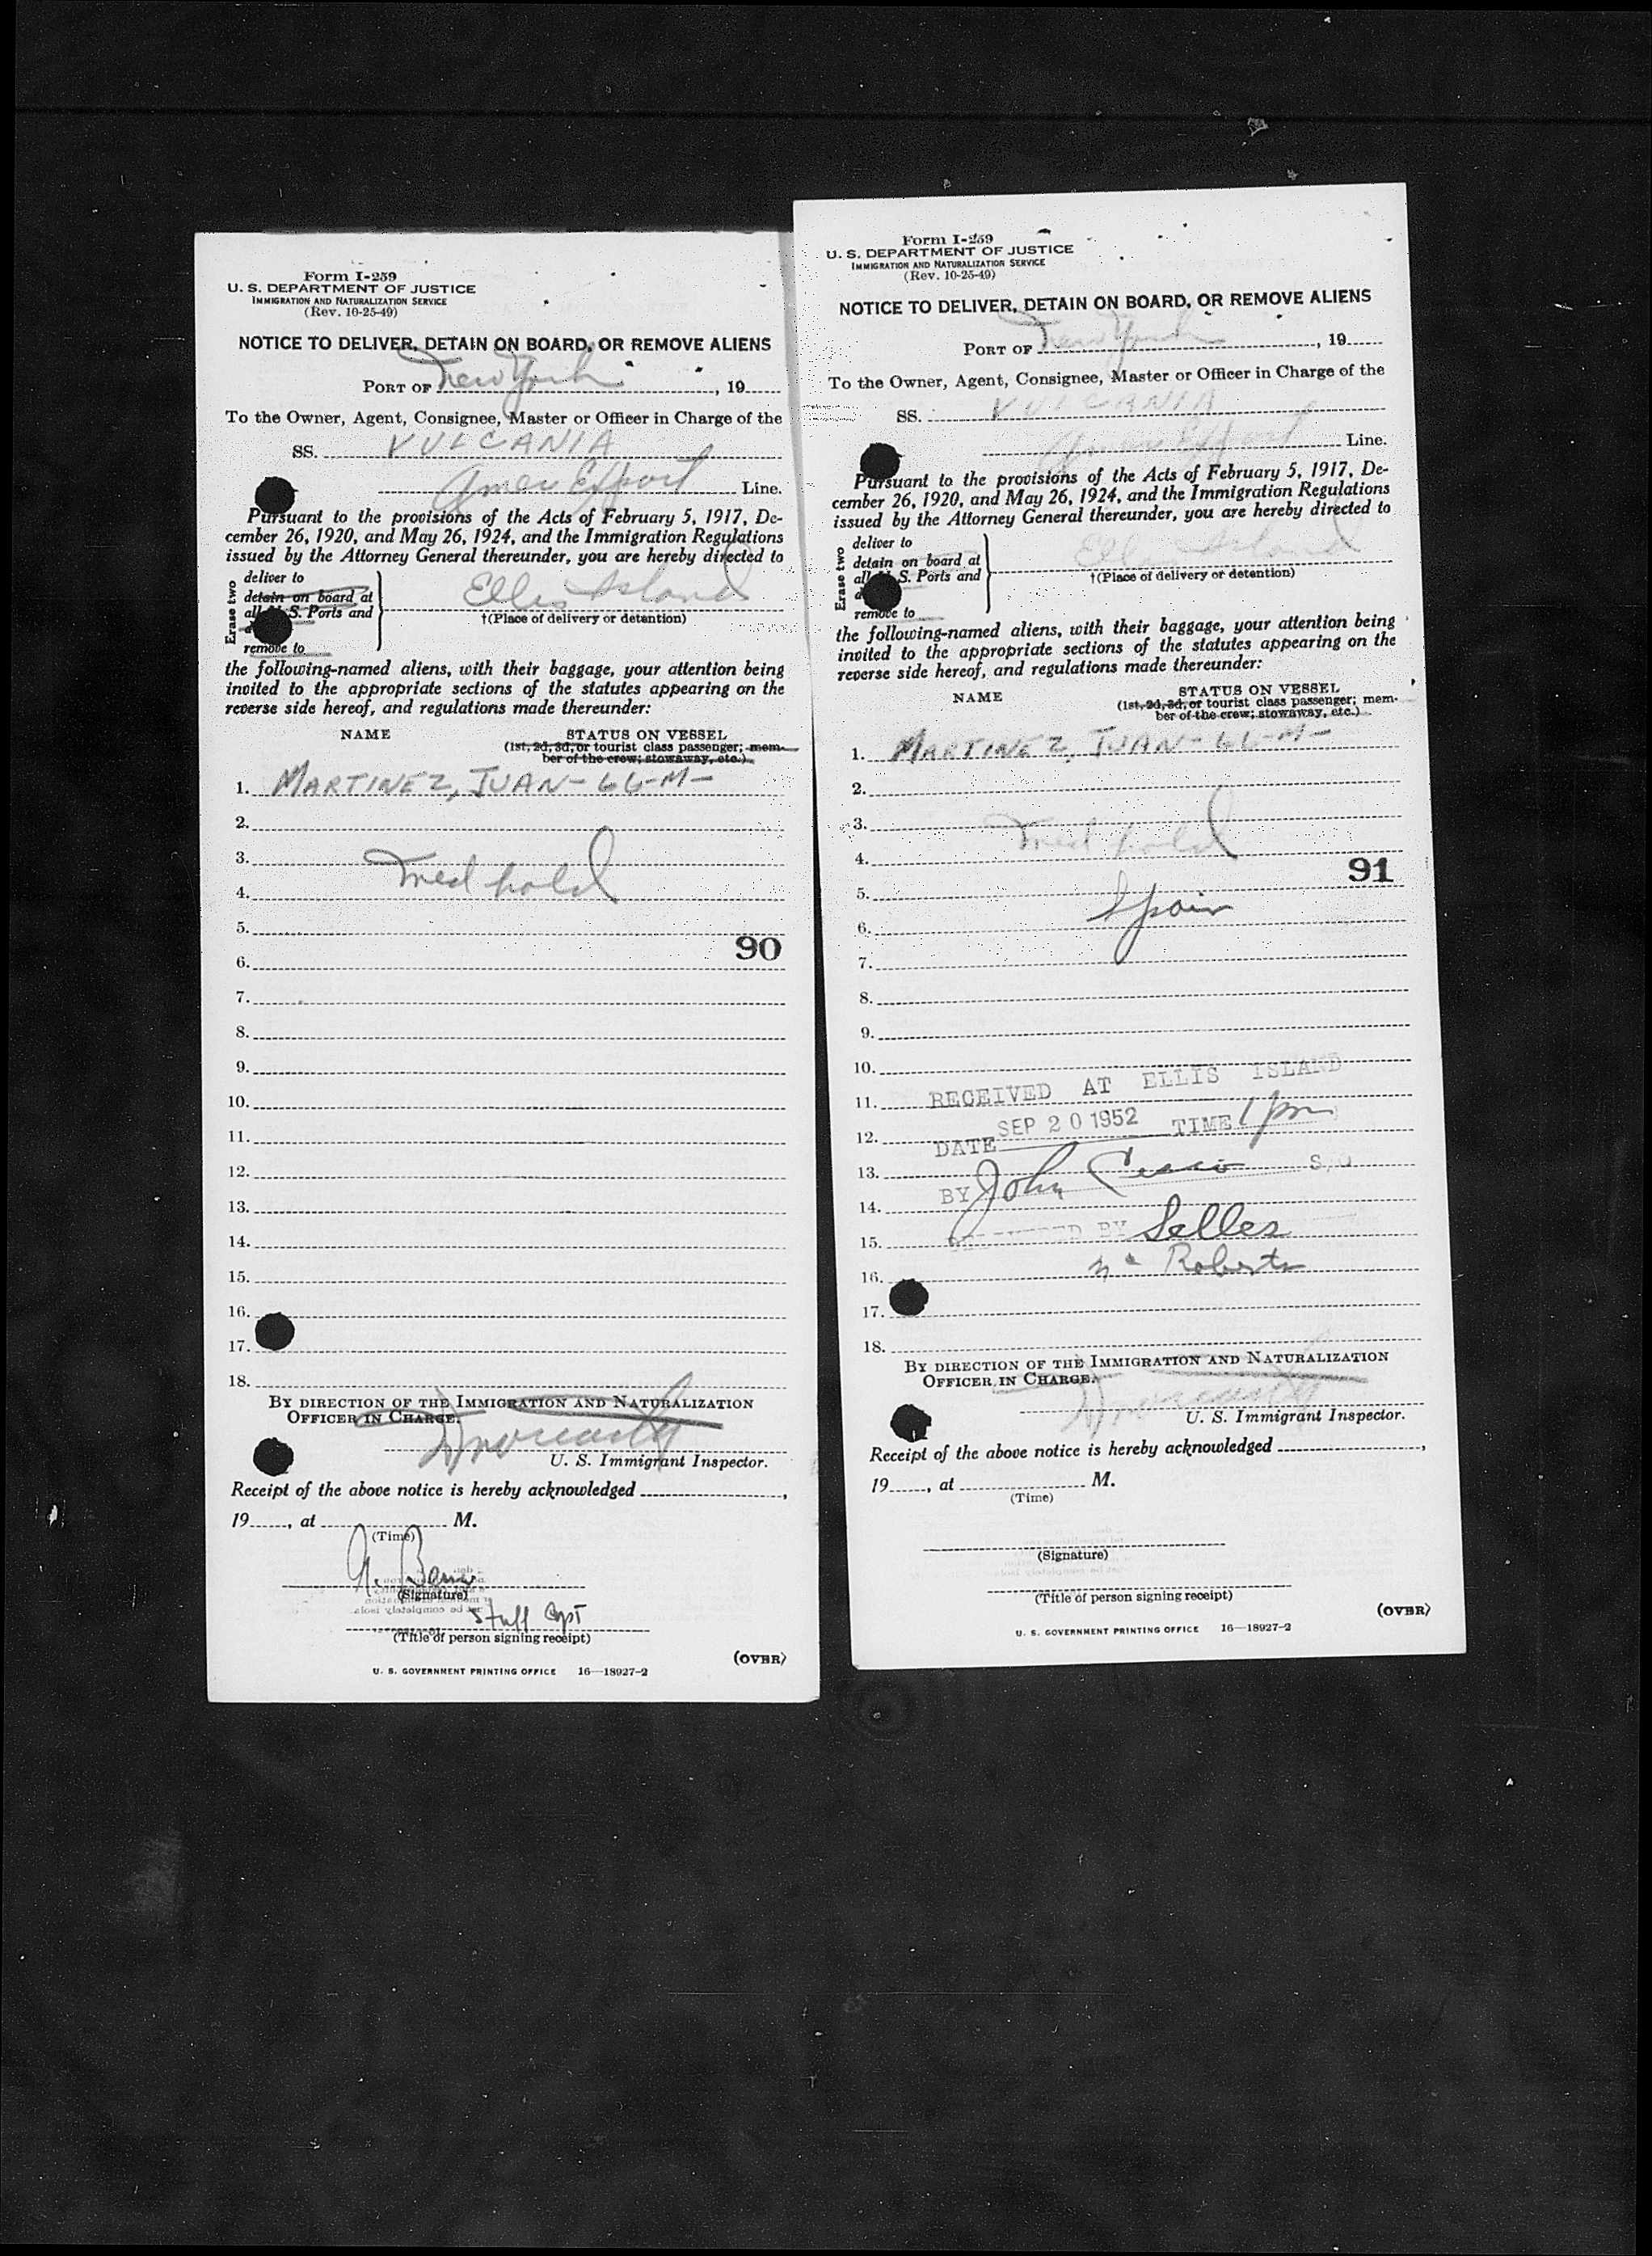 Form I-259
U. S. DEPARTMENT OF JUSTICE
IMMIGRATION AND NATURALIZATION SERVICE
(Rev. 10-25-49)
NOTICE TO DELIVER, DETAIN ON BOARD, OR REMOVE ALIENS
PORT OF New York, 19
To the Owner, Agent, Consignee, Master or Officer in Charge of the
SS. VULCANIA
Amer Export Line.
Pursuant to the provisions of the Acts of February 5, 1917, De-
cember 26, 1920, and May 26, 1924, and the Immigration Regulations
issued by the Attorney General thereunder, you are hereby directed to
Erase two
deliver to
detain on board at
all U. S. Ports and
remove to
Ellis Island
†(Place of delivery or detention)
the following-named aliens, with their baggage, your attention being
invited to the appropriate sections of the statutes appearing on the
reverse side hereof, and regulations made thereunder:
NAME STATUS ON VESSEL
(1st, 2d, 3d, or tourist class passenger; mem-
ber of the crew; stowaway, etc.)
1. MARTINEZ, JUAN - 66 - M -
2.
3.
Med hold
4.
5.
90
6.
7.
8.
9.
10.
11.
12.
13.
14.
15.
16.
17.
18.
BY DIRECTION OF THE IMMIGRATION AND NATURALIZATION
OFFICER IN CHARGE.
U. S. Immigrant Inspector.
Receipt of the above notice is hereby acknowledged
19, at M.
(Time)
(Signature)
Staff Capt
(Title of person signing receipt)
(OVER)
U. S. GOVERNMENT PRINTING OFFICE 16—18927-2
Form I-259
U. S. DEPARTMENT OF JUSTICE
IMMIGRATION AND NATURALIZATION SERVICE
(Rev. 10-25-49)
NOTICE TO DELIVER, DETAIN ON BOARD, OR REMOVE ALIENS
PORT OF New York, 19
To the Owner, Agent, Consignee, Master or Officer in Charge of the
SS. VULCANIA
Amer Export Line.
Pursuant to the provisions of the Acts of February 5, 1917, De-
cember 26, 1920, and May 26, 1924, and the Immigration Regulations
issued by the Attorney General thereunder, you are hereby directed to
Erase two
deliver to
detain on board at
all U. S. Ports and
remove to
Ellis Island
†(Place of delivery or detention)
the following-named aliens, with their baggage, your attention being
invited to the appropriate sections of the statutes appearing on the
reverse side hereof, and regulations made thereunder:
NAME STATUS ON VESSEL
(1st, 2d, 3d, or tourist class passenger; mem-
ber of the crew; stowaway, etc.)
1. MARTINEZ, JUAN - 66 - M -
2.
3.
Med hold
4.
91
5.
Spain
6.
7.
8.
9.
10.
RECEIVED AT ELLIS ISLAND
11.
DATE SEP 20 1952 TIME 1 pm
12.
13.
BY John
14.
BY Selles
15.
Mc Roberts
16.
17.
18.
BY DIRECTION OF THE IMMIGRATION AND NATURALIZATION
OFFICER IN CHARGE.
U. S. Immigrant Inspector.
Receipt of the above notice is hereby acknowledged
19, at M.
(Time)
(Signature)
(Title of person signing receipt)
(OVER)
U. S. GOVERNMENT PRINTING OFFICE 16—18927-2